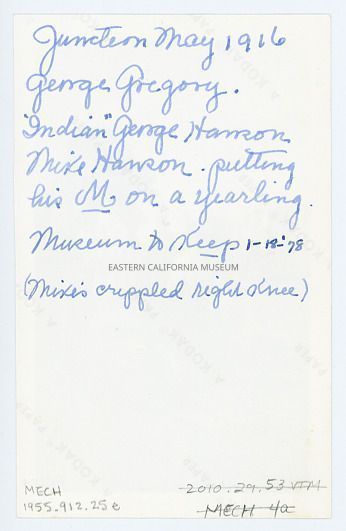 Junction May 1916
George Gregory.
"Indian" George Hanson
Mike Hanson. putting
his M on a yearling.
Museum to Keep 1-18-'78
EASTERN CALIFORNIA MUSEUM
(Mike's crippled right knee)
A KODAK PAPER
MECH
1955.912.25e
2010.29.53 VTM
MECH 4a